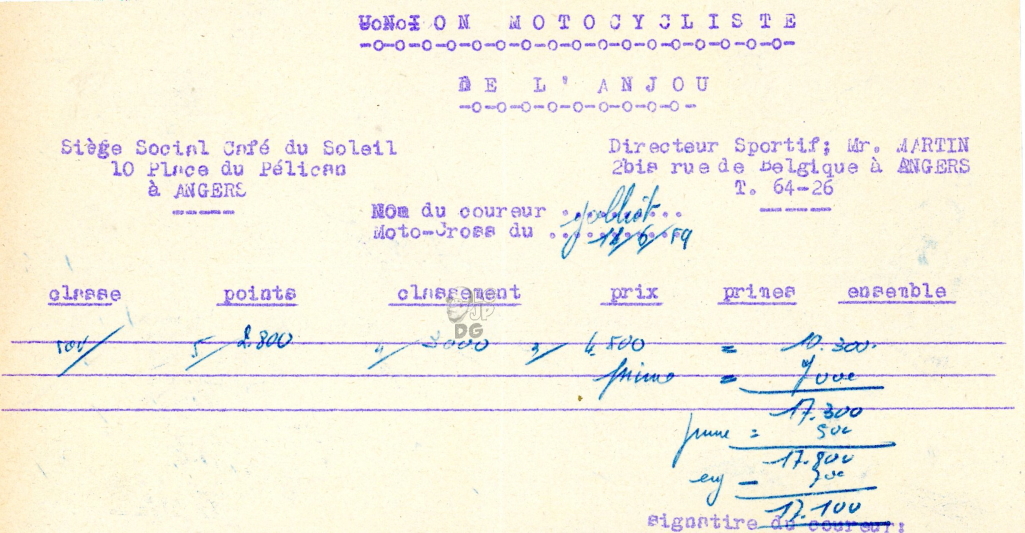 UoNoI O N M O T O C Y C L I S T E
-o-o-o-o-o-o-o-o-o-o-o-o-o-o-o-o-
D E L ' A N J O U
-o-o-o-o-o-o-o-o-o-
Siège Social Café du Soleil
10 Place du Pélican
à ANGERS
Directeur Sportif; Mr. MARTIN
2bis rue de Belgique à ANGERS
T. 64-26
Nom du coureur ..........
Moto-Cross du .......... /6/59
classe points classement prix primes ensemble
500 5/ 2.800 4/ 3000 3/ 4.500 = 10.300.
prime = 7000
17.300
prime = 500
17.800
eng - 700
17.100
signatire du coureur:
JP
DG